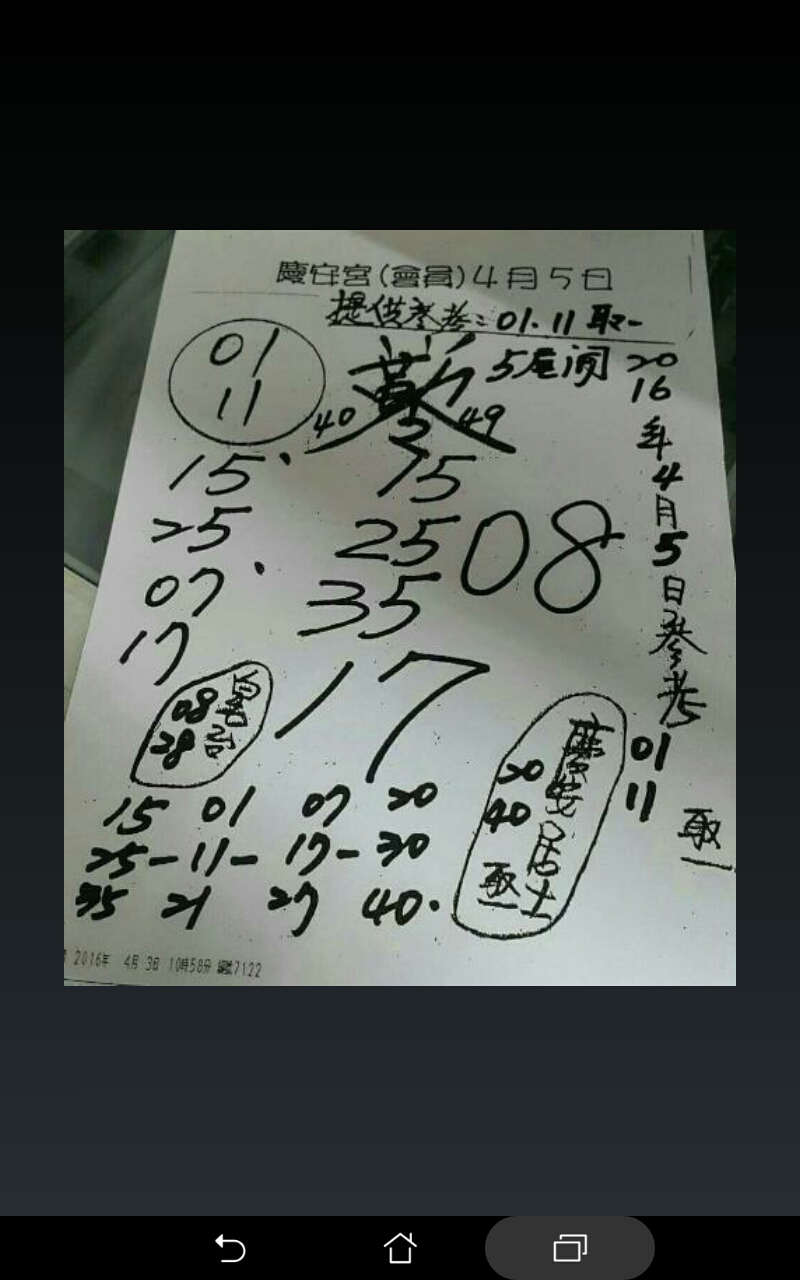 慶安宮(會員)4月5日
提供參考:01.11取一
01
11
40
49
5尾闭
15
25
07
17
15
25
35
08
17
2016年4月5日參考
01
11
取一
08
28
20
40
慶安居士
取一
15 01 07 20
25-11-17-30
35 21 27 40.
2016年 4月 3日 10時58分 編號7122